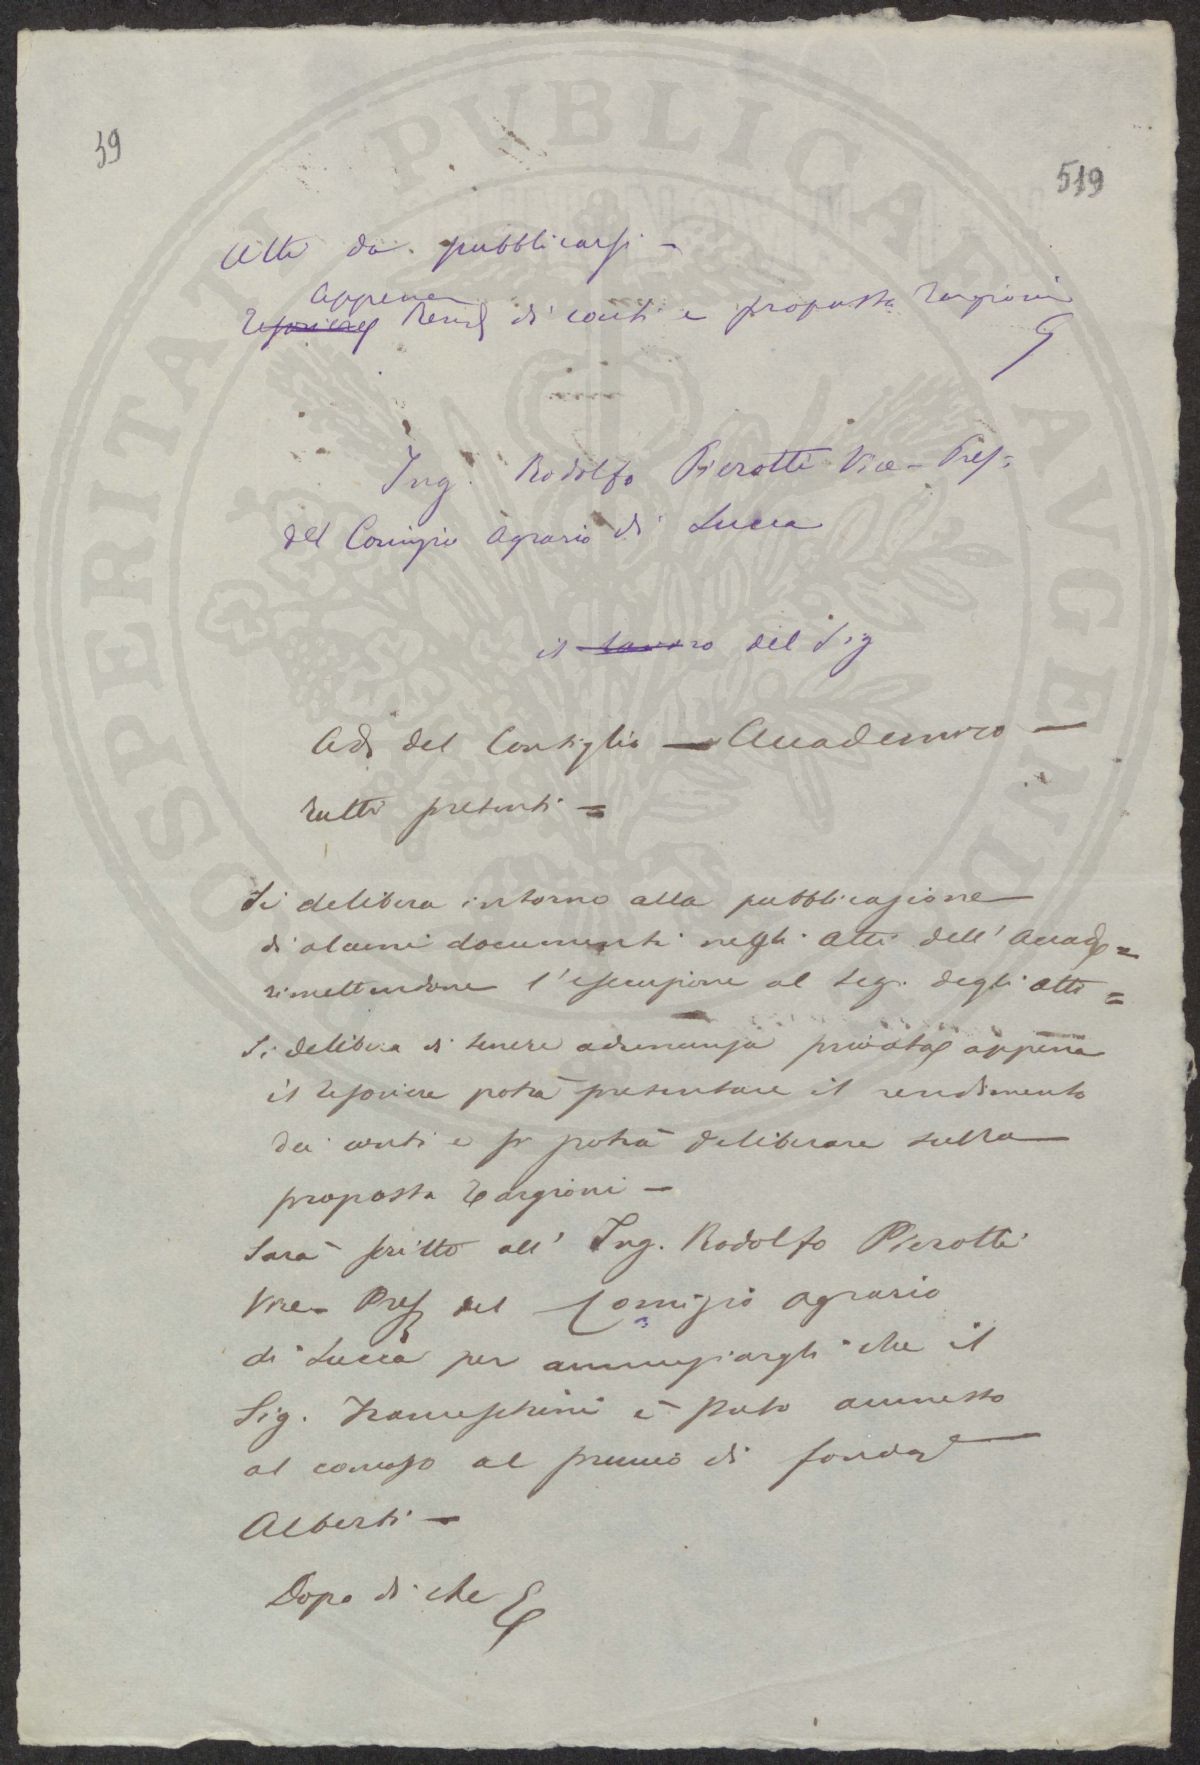 39
519
Atti da pubblicarsi -
appena
Tesoriere Rend di conti e proposta Targioni
Ing. Rodolfo Pierotti Vice - Pres.
del Comizio Agrario di Lucca
il lavoro del Sig
Ad. del Consiglio — Accademico —
tutti presenti =
Si delibera intorno alla pubblicazione
di alcuni documenti negli Atti dell' Accad. =
rimettendone l'esecuzione al Seg. degli Atti =
Si delibera di tenere adunanza privata appena
il Tesoriere potrà presentare il rendimento
dei conti e si potrà deliberare sulla
proposta Targioni —
Sarà scritto all' Ing. Rodolfo Pierotti
Vice - Pres del Comizio agrario
di Lucca per annunziargli che il
Sig. Franceschini è stato ammesso
al concorso al premio di fondaz
Alberti —
Dopo di che
PROSPERITATI PUBLICAE AVGENDAE